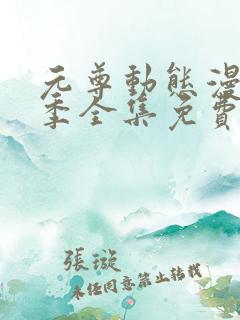 元尊動態漫
季全集免費
張璇
未经同意禁止转载